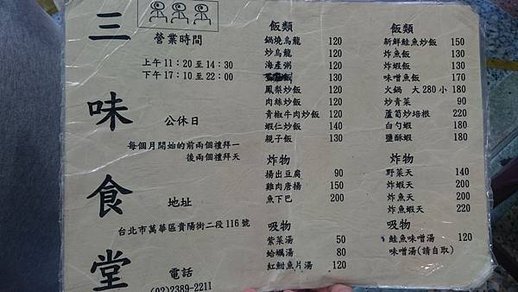 三味食堂
營業時間
上午11:20至14:30
下午17:10至22:00
公休日
每個月開始的前兩個禮拜一
後兩個禮拜天
地址
台北市萬華區貴陽街二段116號
電話
(02)2389-2211
飯類
鍋燒烏龍 120
炒烏龍 120
海產粥 130
130
鳳梨炒飯 130
肉絲炒飯 120
青椒牛肉炒飯 130
蝦仁炒飯 130
親子飯 130
炸物
揚出豆腐 90
雞肉唐揚 150
魚下巴 200
吸物
紫菜湯 50
蛤蠣湯 80
紅魽魚片湯 120
飯類
新鮮鮭魚炒飯 150
炸魚飯 130
炸蝦飯 130
味噌魚飯 170
火鍋 大280小180
炒青菜 90
蘆筍炒培根 220
白勺蝦 180
鹽酥蝦 180
炸物
野菜天 140
炸蝦天 200
炸魚天 200
炸魚蝦天 220
吸物
鮭魚味噌湯 120
味噌湯(請自取)